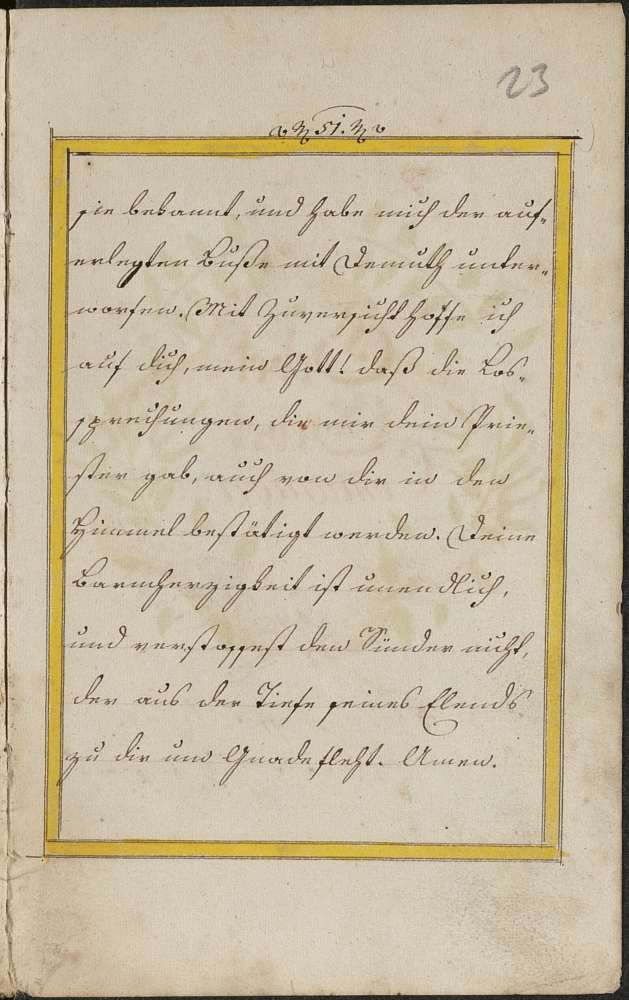 23
51.
sie bekannt, und habe mich der auf-
erlegten Buße mit Demuth unter-
worfen. Mit Zuversicht hoffe ich
auf dich, mein Gott! daß die Los-
sprechungen, die mir dein Prie-
ster gab, auch von dir in den
Himmel bestätigt werden. Deine
Barmherzigkeit ist unendlich,
und verstossest den Sünder nicht,
der aus der Tiefe seines Elends
zu dir um Gnade fleht. Amen.